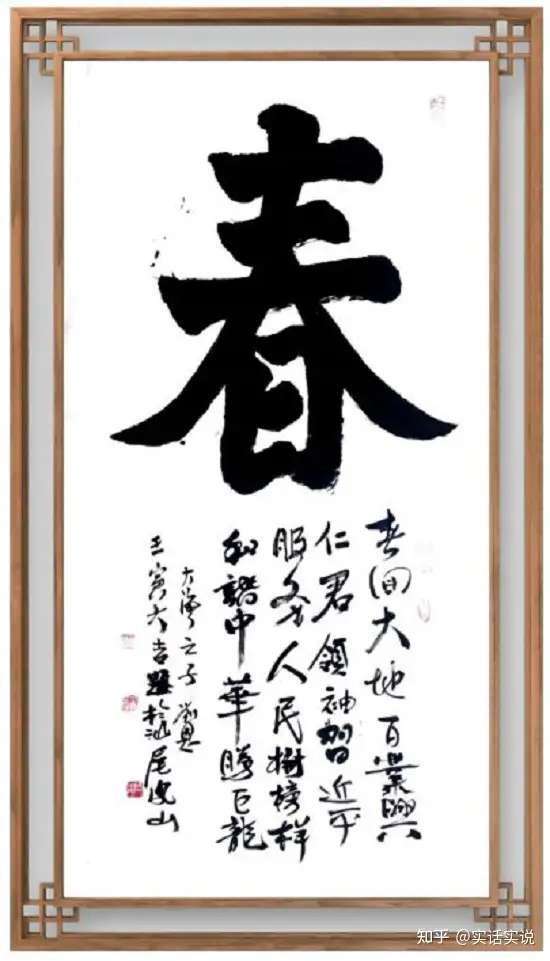 春
春回大地百業興
仁君領袖習近平
服务人民樹榜样
和諧中華騰巨龍
大之子
壬寅大吉題於汕尾山
知乎 @实话实说